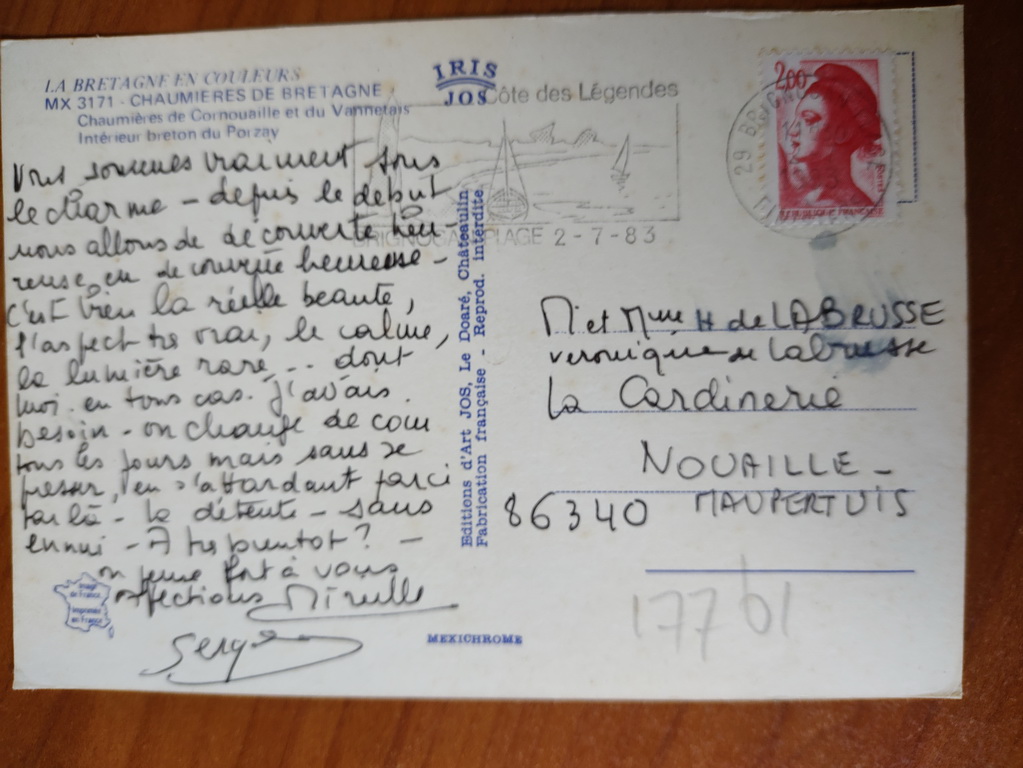 LA BRETAGNE EN COULEURS
MX 3171 - CHAUMIERES DE BRETAGNE
Chaumières de Cornouaille et du Vannetais
Intérieur breton du Porzay
IRIS
JOS
Côte des Légendes
BRIGNOGAN PLAGE 2-7-83
29 BRIGNOGAN
2,00
REPUBLIQUE FRANÇAISE
sommes vraiment sous
le charme - depuis le début
nous allons de découverte heu-
reuse, en découverte heureuse -
c'est bien la réelle beauté,
l'aspect très vrai, le calme,
la lumière rare... dont
moi. en tous cas. j'avais.
besoin - on change de coin
tous les jours mais sans se
presser, en s'attardant par ci
par là - la détente - sans
ennui - A très bientot? -
on pense fort à vous
affections Mireille
Serge
Editions d'Art JOS, Le Doaré, Châteaulin
Fabrication française - Reprod. interdite
M et Mme H de LABRUSSE
veronique de Labrusse
la Cardinerie
NOUAILLE -
86340 MAUPERTUIS
177 61
Image
de France
Imprimé
en France
MEXICHROME